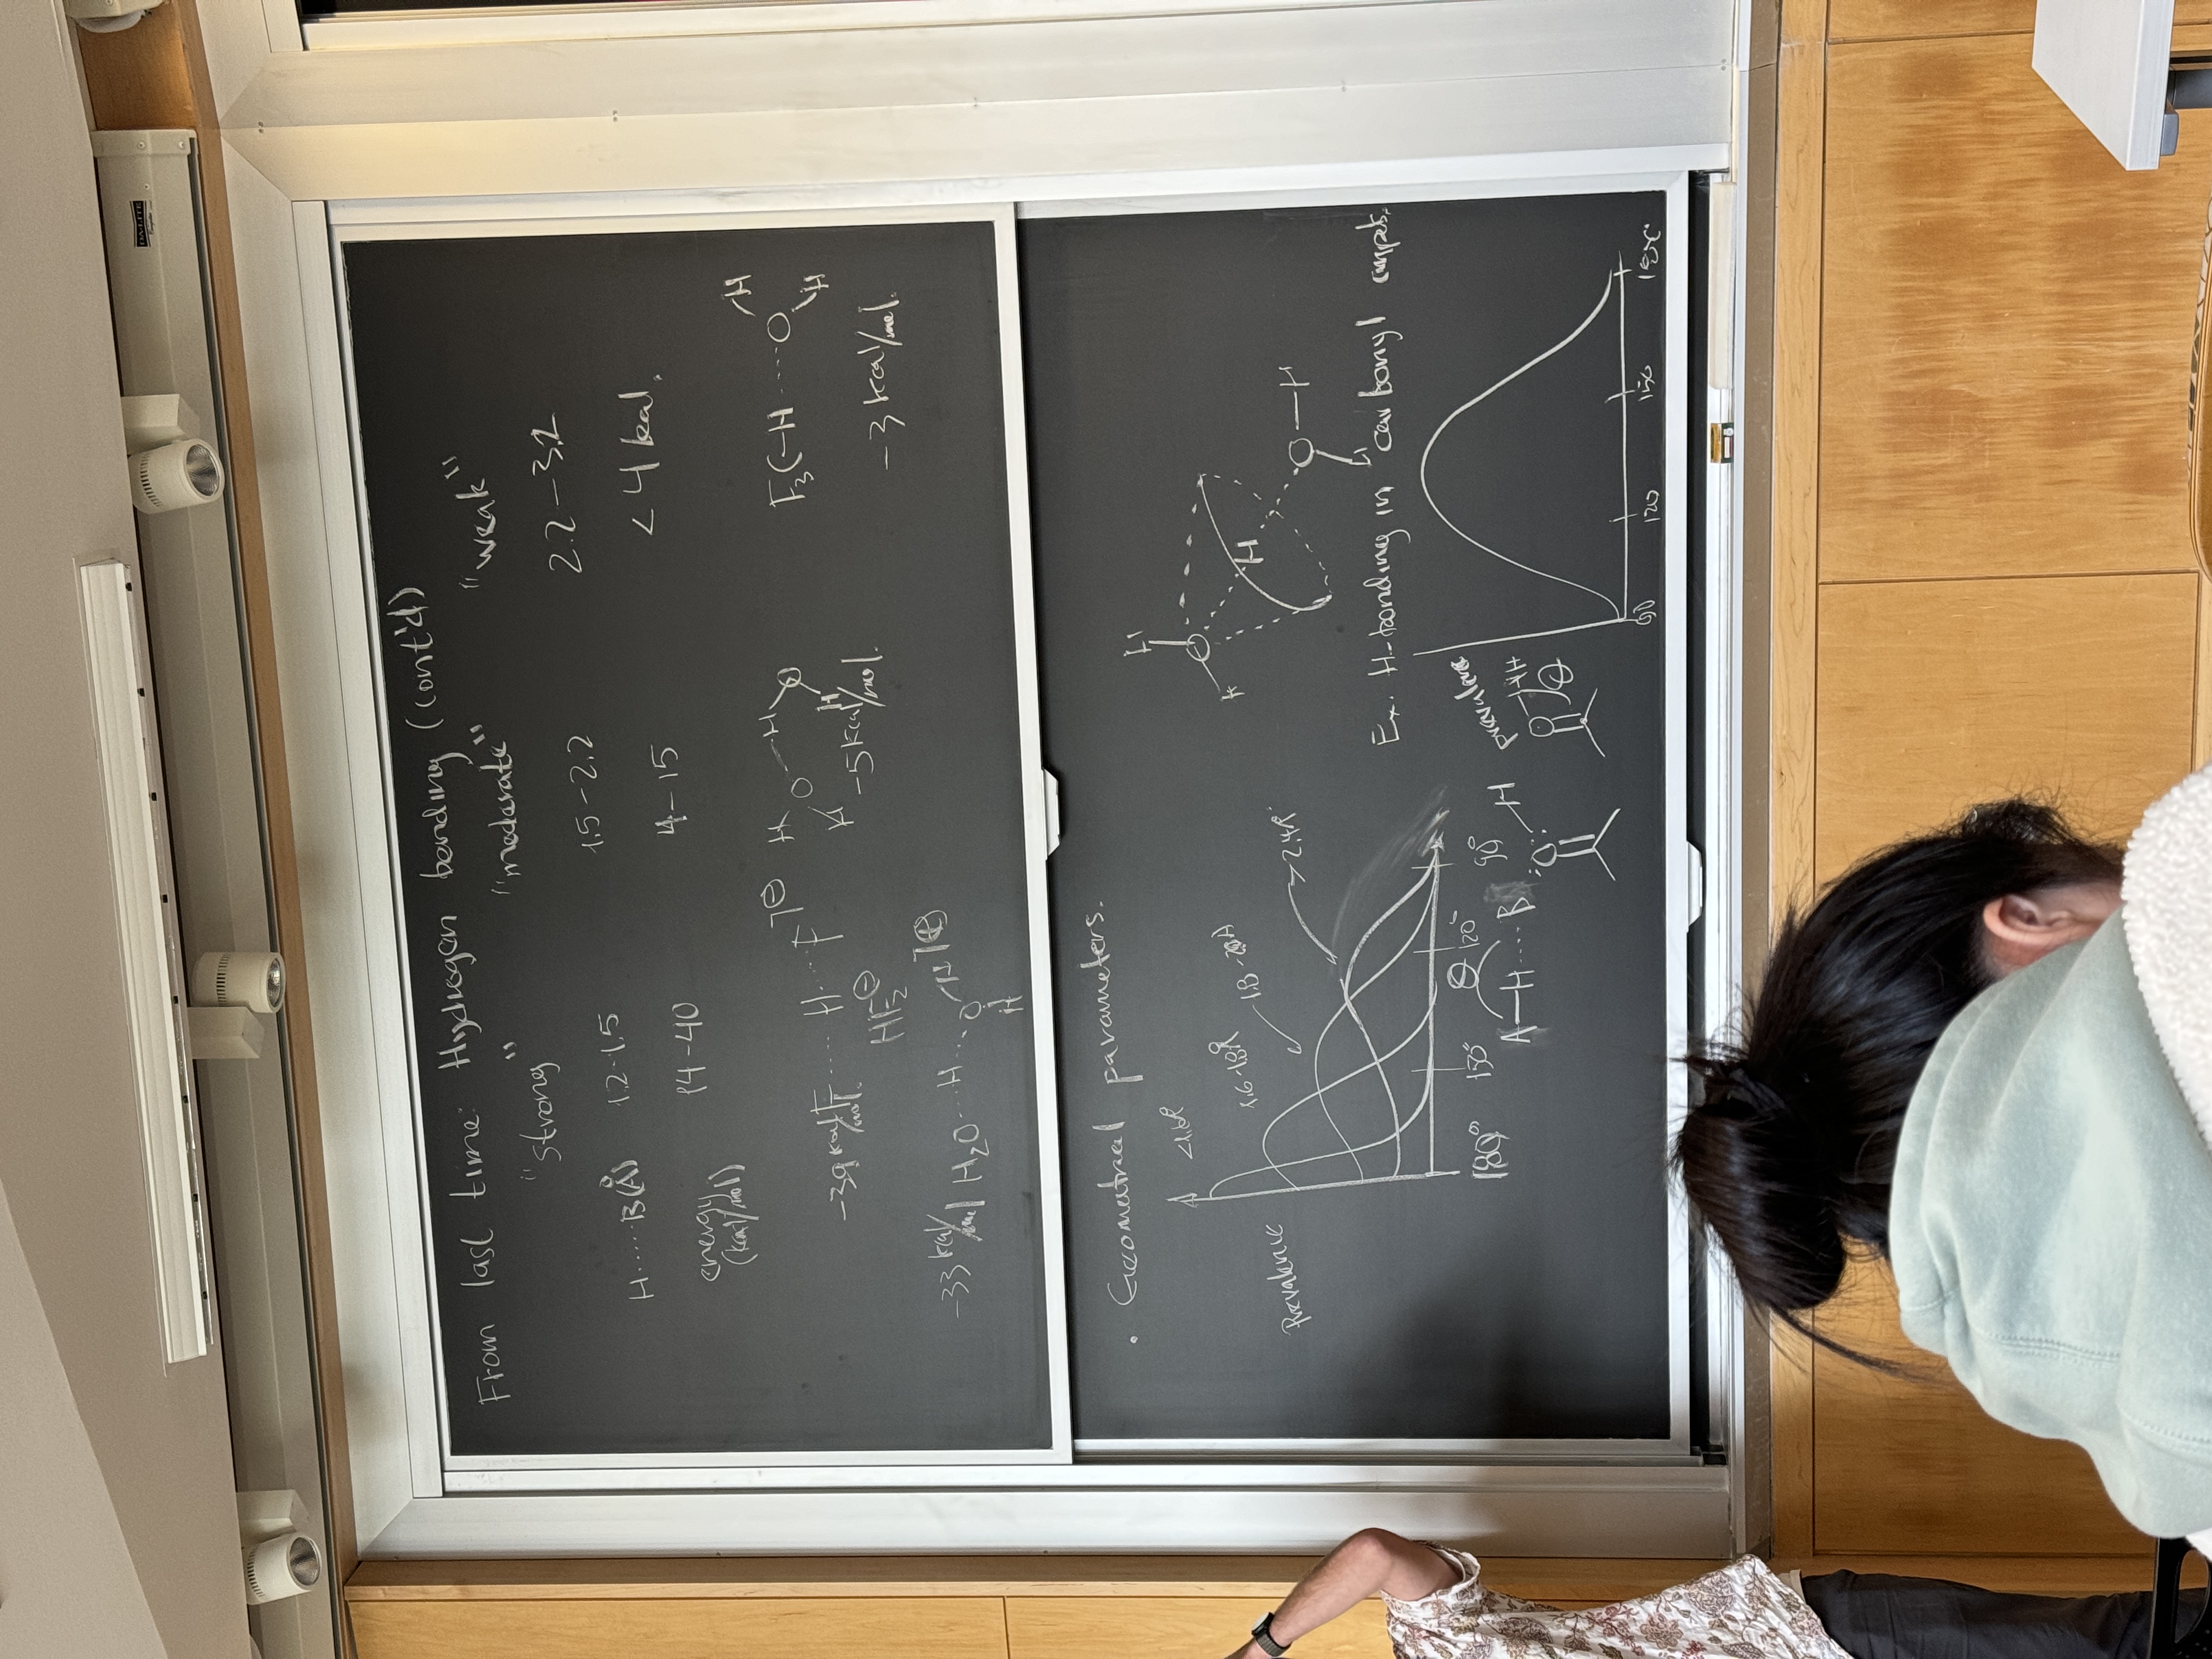 DA-LITE
From last time: Hydrogen bonding (cont'd)
"strong" "moderate" "weak"
H·····B(Å) 1.2-1.5 1.5-2.2 2.2-3.2
energy (kcal/mol) 14-40 4-15 <4 kcal.
-39 kcal/mol. F····H··F ⊖
HF2⊖
H O H O H
-5 kcal/mol.
F3C-H ····· O H H
-3 kcal/mol.
-33 kcal/mol H2O···H···O H H ⊕
· Geometrical parameters.
<1.6Å
1.6-1.8Å
1.8-2.0Å
>2.4Å
Prevalence
180° 150° 120° 90°
θ
A—H····B
:O: H
H O H H O H
Ex. H-bonding in carbonyl cmpds.
prevalence
O H θ
90 120 150 180°